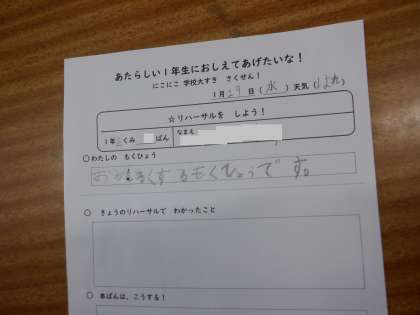 あたらしい1年生におしえてあげたいな!
にこにこ 学校大すき さくせん!
1月29日(水)天気(はれ)
☆リハーサルを しよう!
1年 くみ ばん なまえ
○わたしの もくひょう
おかるくするもくひょうです。
○ きょうのリハーサルで わかったこと
○ 本ばんは、こうする!